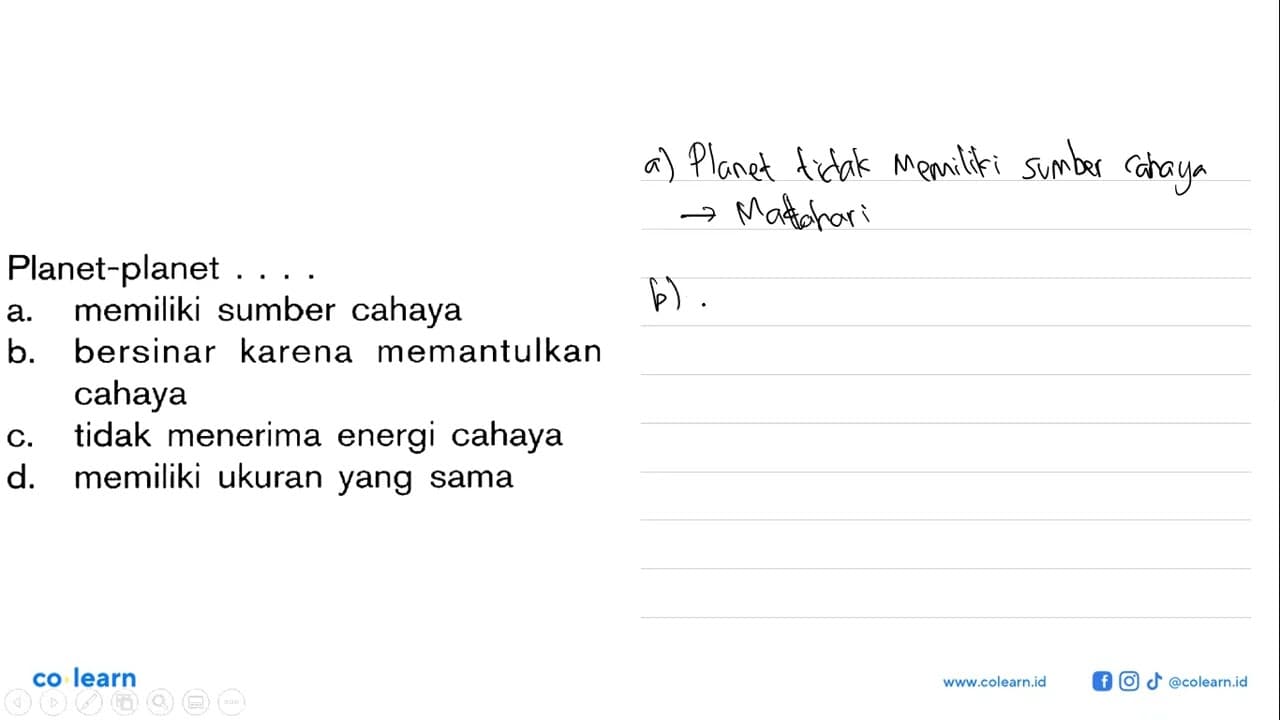 Planet-planet . . . .
a. memiliki sumber cahaya
b. bersinar karena memantulkan
cahaya
c. tidak menerima energi cahaya
d. memiliki ukuran yang sama
a) Planet tidak memiliki sumber cahaya
→ Matahari
b) .
co learn
www.colearn.id
@colearn.id